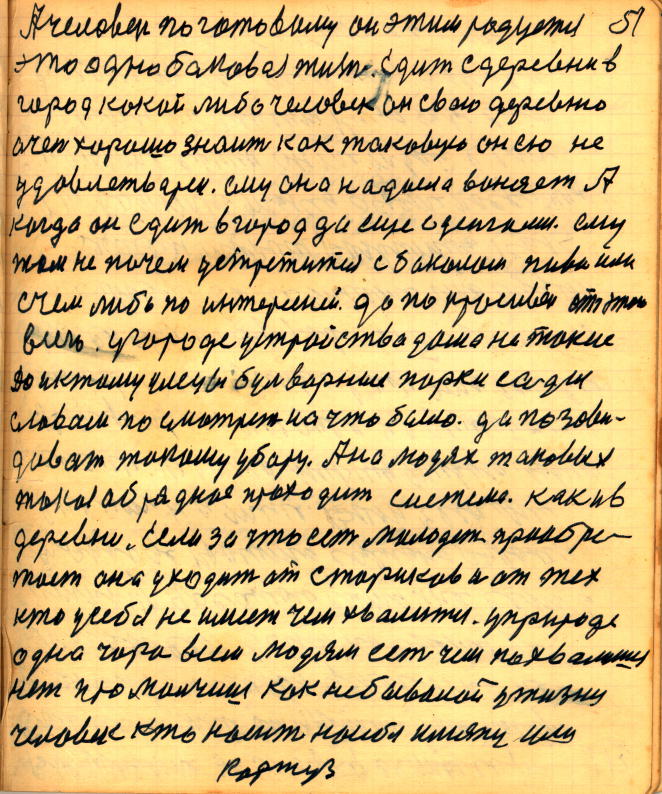 А человек по готовому он этим радуется 51
это одно бакова я жизн. Едит с деревни в
город какой либо человек он свою деревню
очен хорошо знаит как таковую он ею не
удовлетварен. ему она надоела воняет А
когда он едит в город да еще с денгами. ему
там не почем устретится с бокалом пива или
с чем либо по интересней. да по
всего. у городе устройства дома не такие
до и к тому улецы булварные парки сады
словам по смотрет на что было. да позови-
доват такому убору. А на людях таковых
такая обрядная проходит система. как и в
деревни. Если за что ест молодеж приобре-
тает она уходит от стариков и от тех
кто у себя не имеет чем хвалится. у природе
одна чара всем людям ест чем похвалится
нет промолчиш как не бывалой у жизни
человек кто носит на себя имяну или
картуз